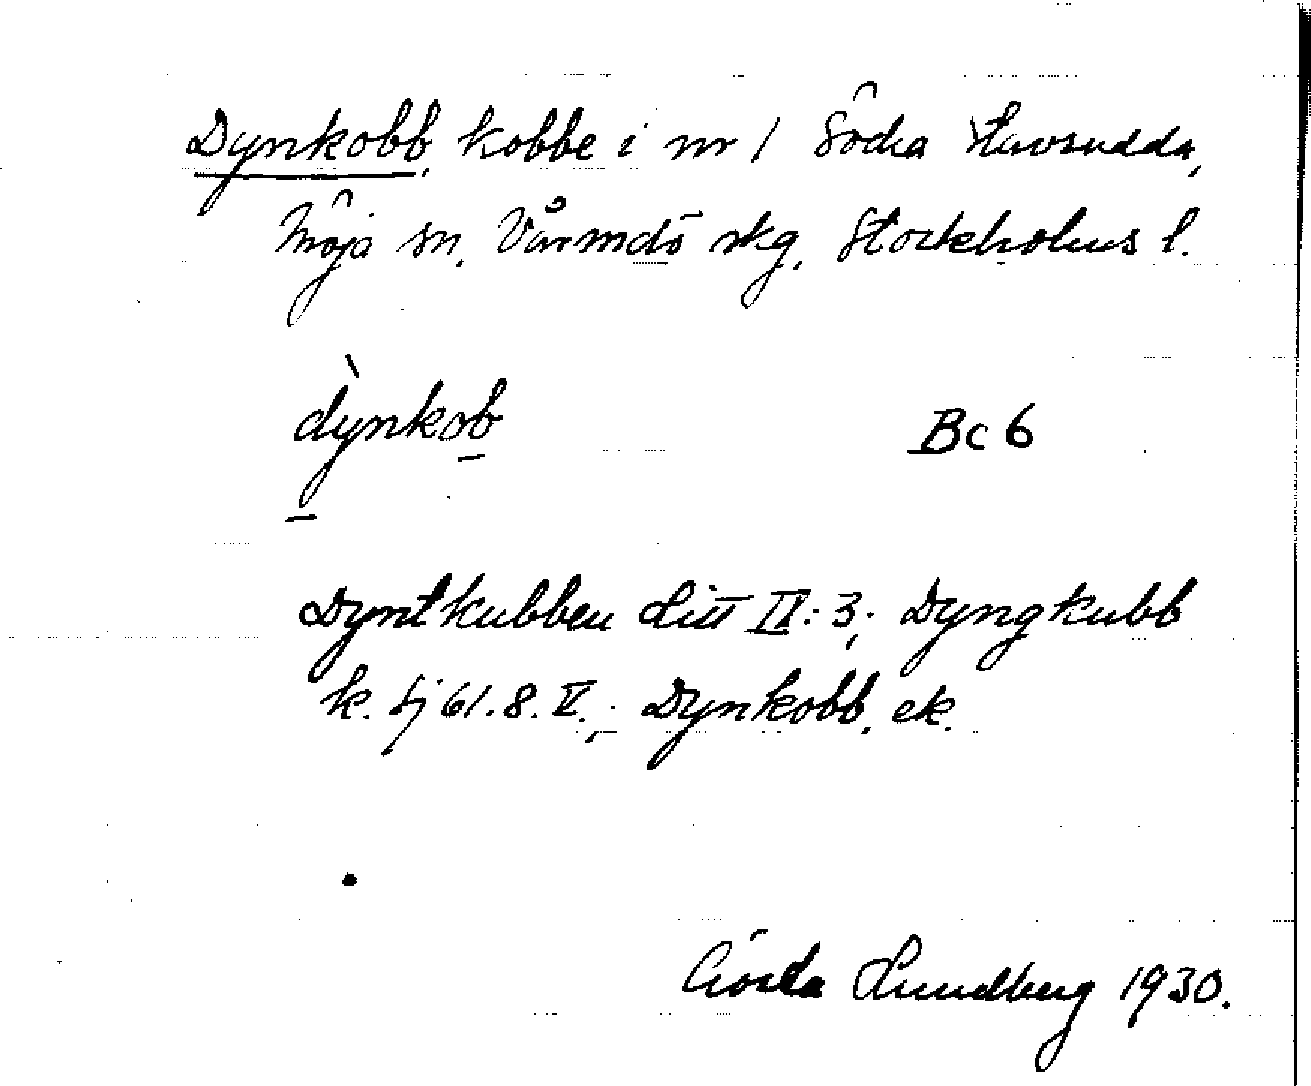 Dynkobb, kobbe i nr 1 Södra Havsudda,
Möja sn, Värmdö skg, Stockholms l.
dỳnkob
Bc 6
Dyntkubben Litt II:3; Dyngkubb
k. Lj 61.8.V.; Dynkobb, ek.
Gösta Lundberg 1930.